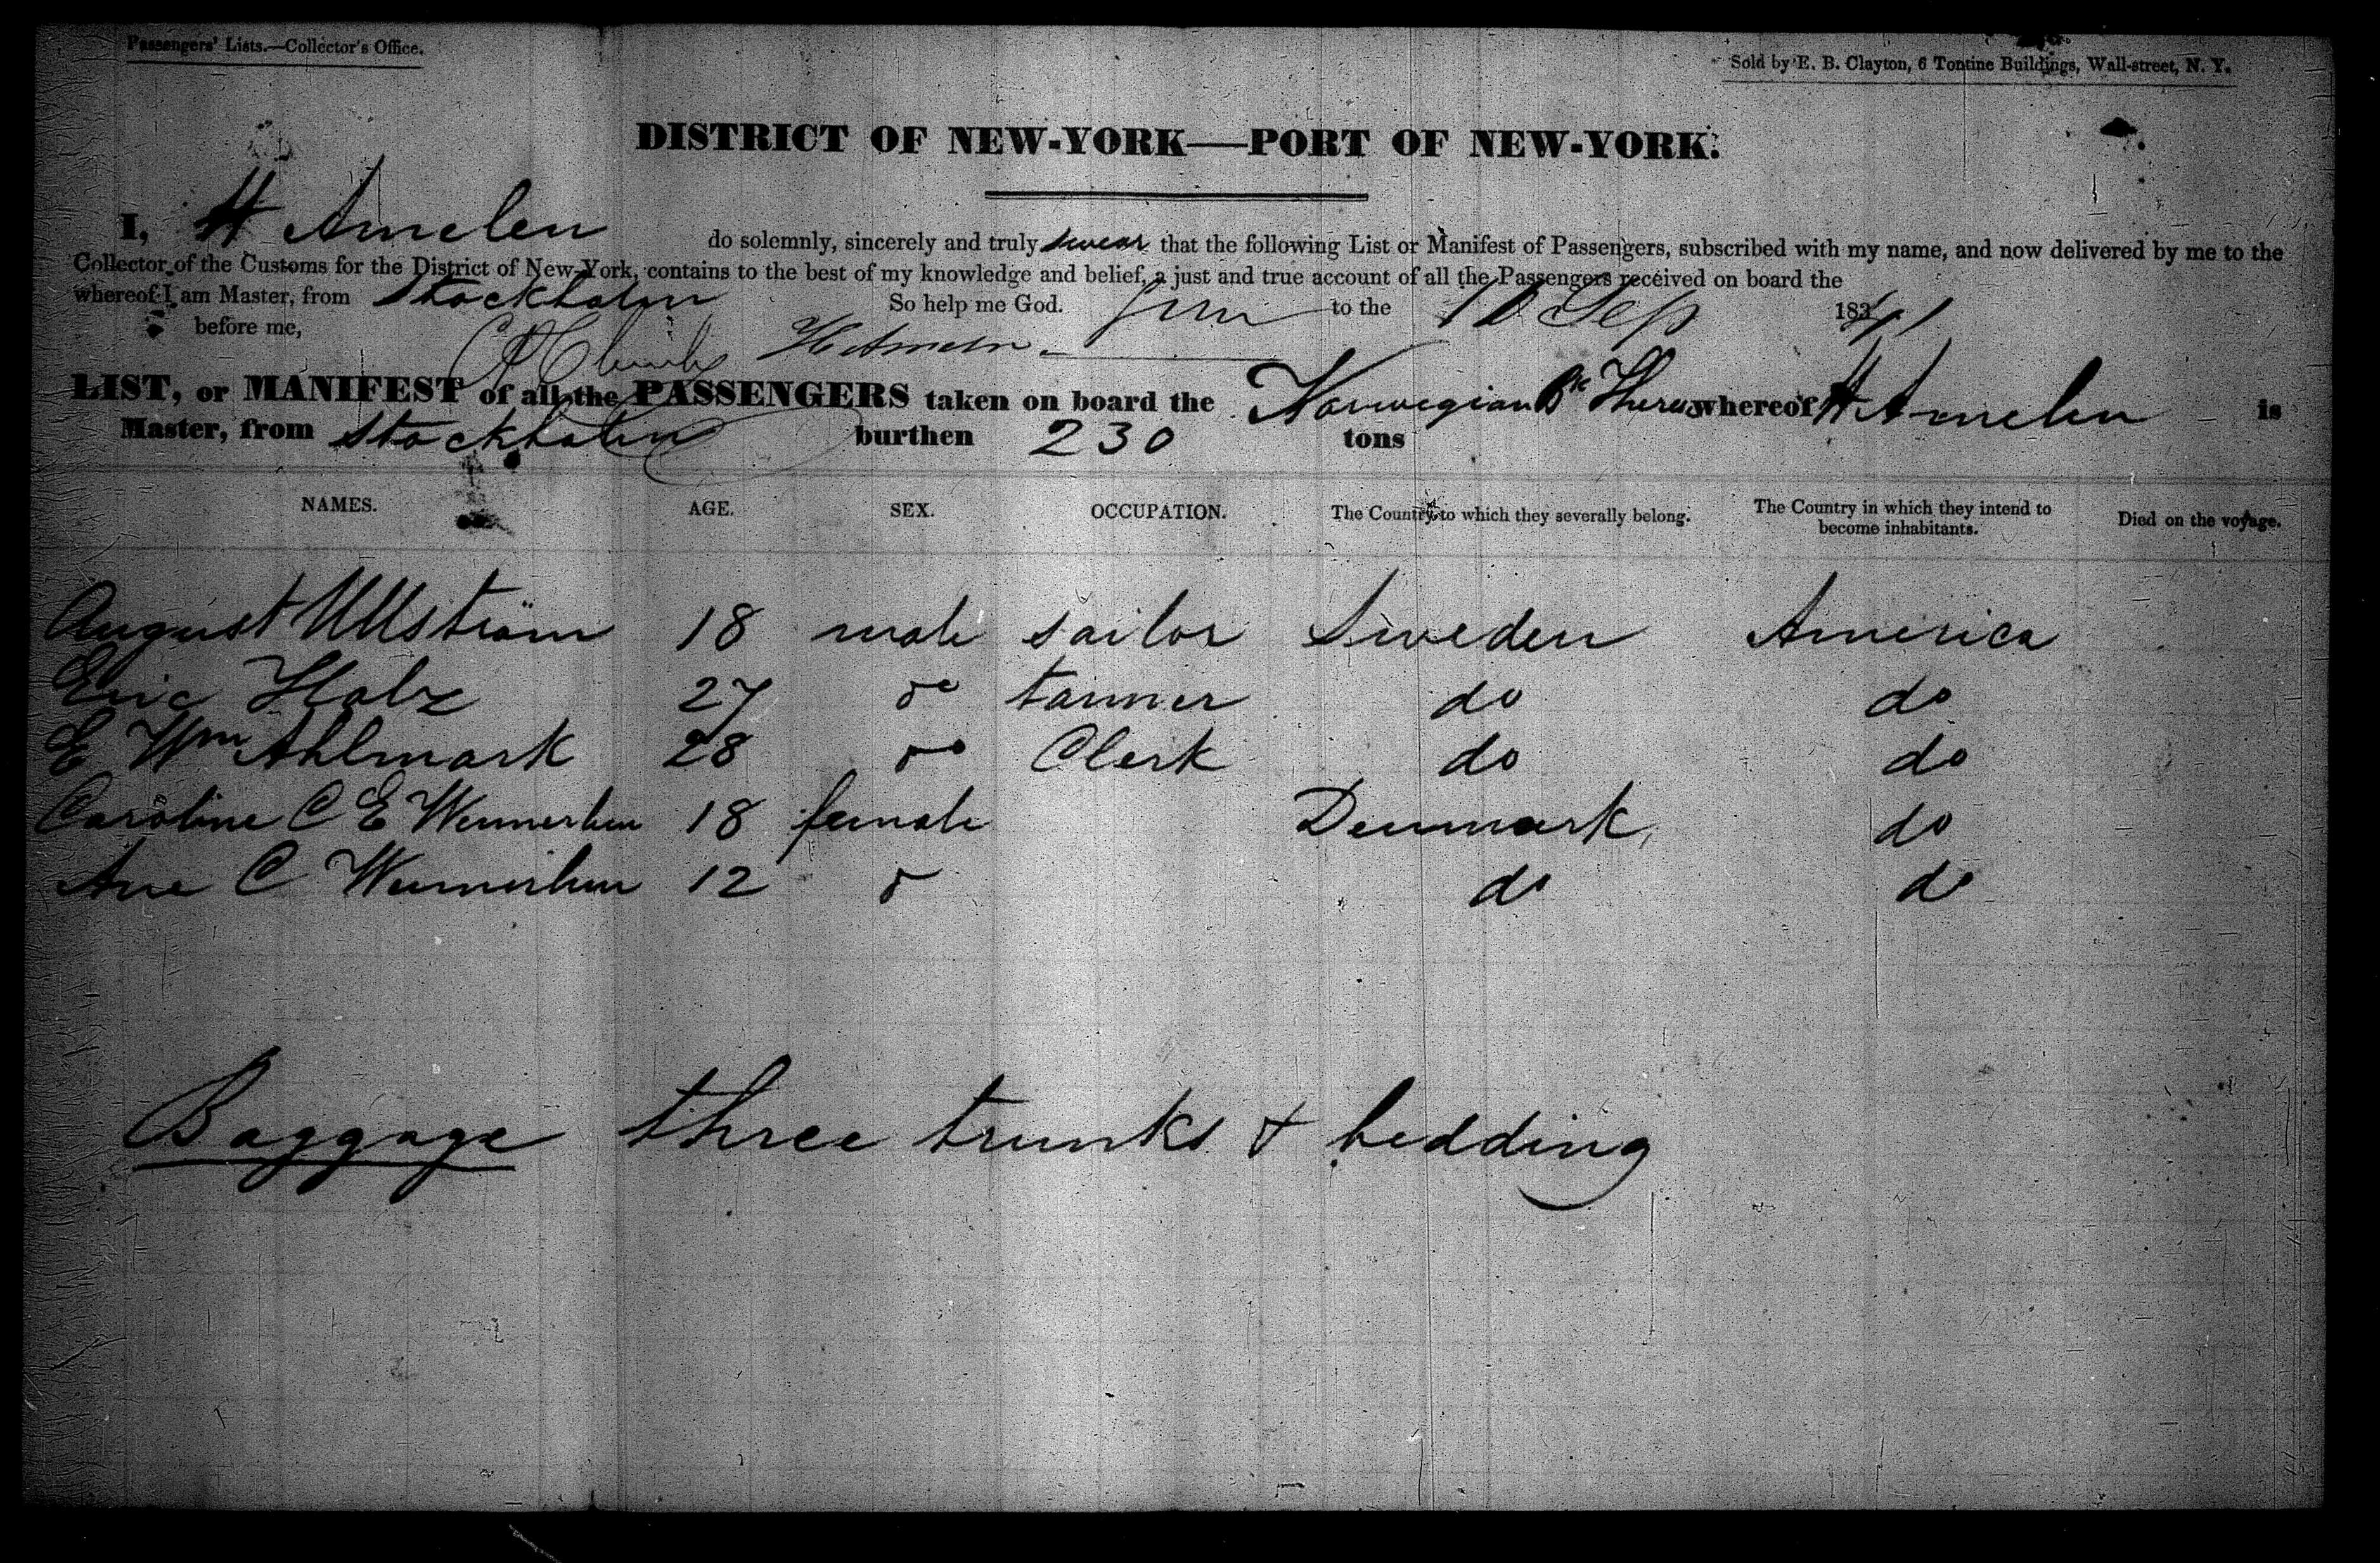 Passengers' Lists.—Collector's Office.
Sold by E. B. Clayton, 6 Tontine Buildings, Wall-street, N. Y.
DISTRICT OF NEW-YORK—PORT OF NEW-YORK.
I, H Amelen do solemnly, sincerely and truly swear that the following List or Manifest of Passengers, subscribed with my name, and now delivered by me to the
Collector of the Customs for the District of New-York, contains to the best of my knowledge and belief, a just and true account of all the Passengers received on board the
whereof I am Master, from Stockholm So help me God.
to the 10 Sep 1841
before me, H Amelen
LIST, or MANIFEST of all the PASSENGERS taken on board the Norwegian Bk whereof H Amelen is
Master, from Stockholm burthen 230 tons
NAMES. AGE. SEX. OCCUPATION. The Country to which they severally belong. The Country in which they intend to become inhabitants. Died on the voyage.
August Ullström 18 male sailor Sweden America
Eric Holz 27 do tanner do do
E Wm Ahlmark 28 do Clerk do do
Caroline C E 18 female Denmark do
Ane C 12 do do do
Baggage three trunks & bedding